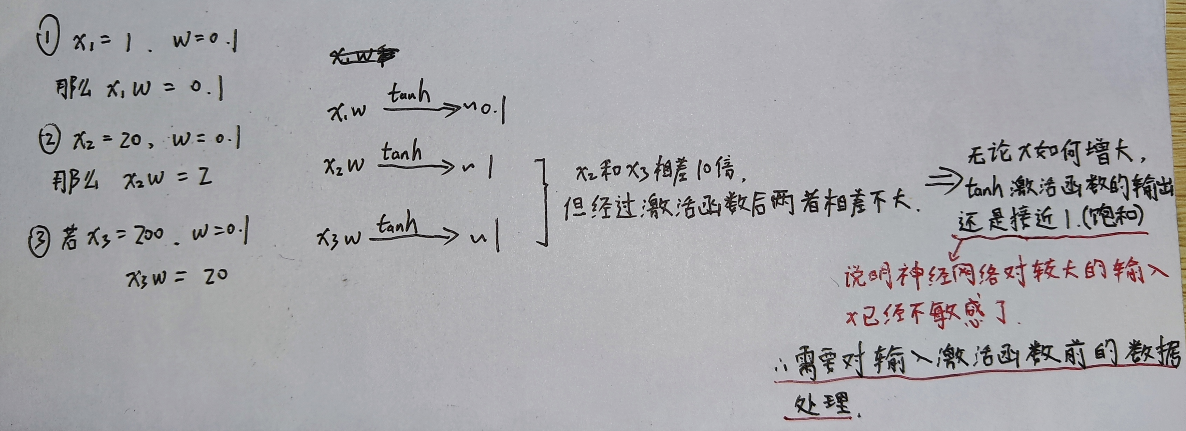 ① x₁ = 1 . w=0.1
那么 x₁w = 0.1
② x₂ = 20, w=0.1
那么 x₂w = 2
③ 若x₃=200 . w=0.1
x₃w = 20
x₁w
x₁w tanh ~0.1
x₂w tanh ~1
x₃w tanh ~1
x₂和x₃相差10倍,
但经过激活函数后两者相差不大.
⇒ 无论x如何增大,
tanh激活函数的输出
还是接近1.(饱和)
说明神经网络对较大的输入
x已经不敏感了.
∴需要对输入激活函数前的数据
处理.